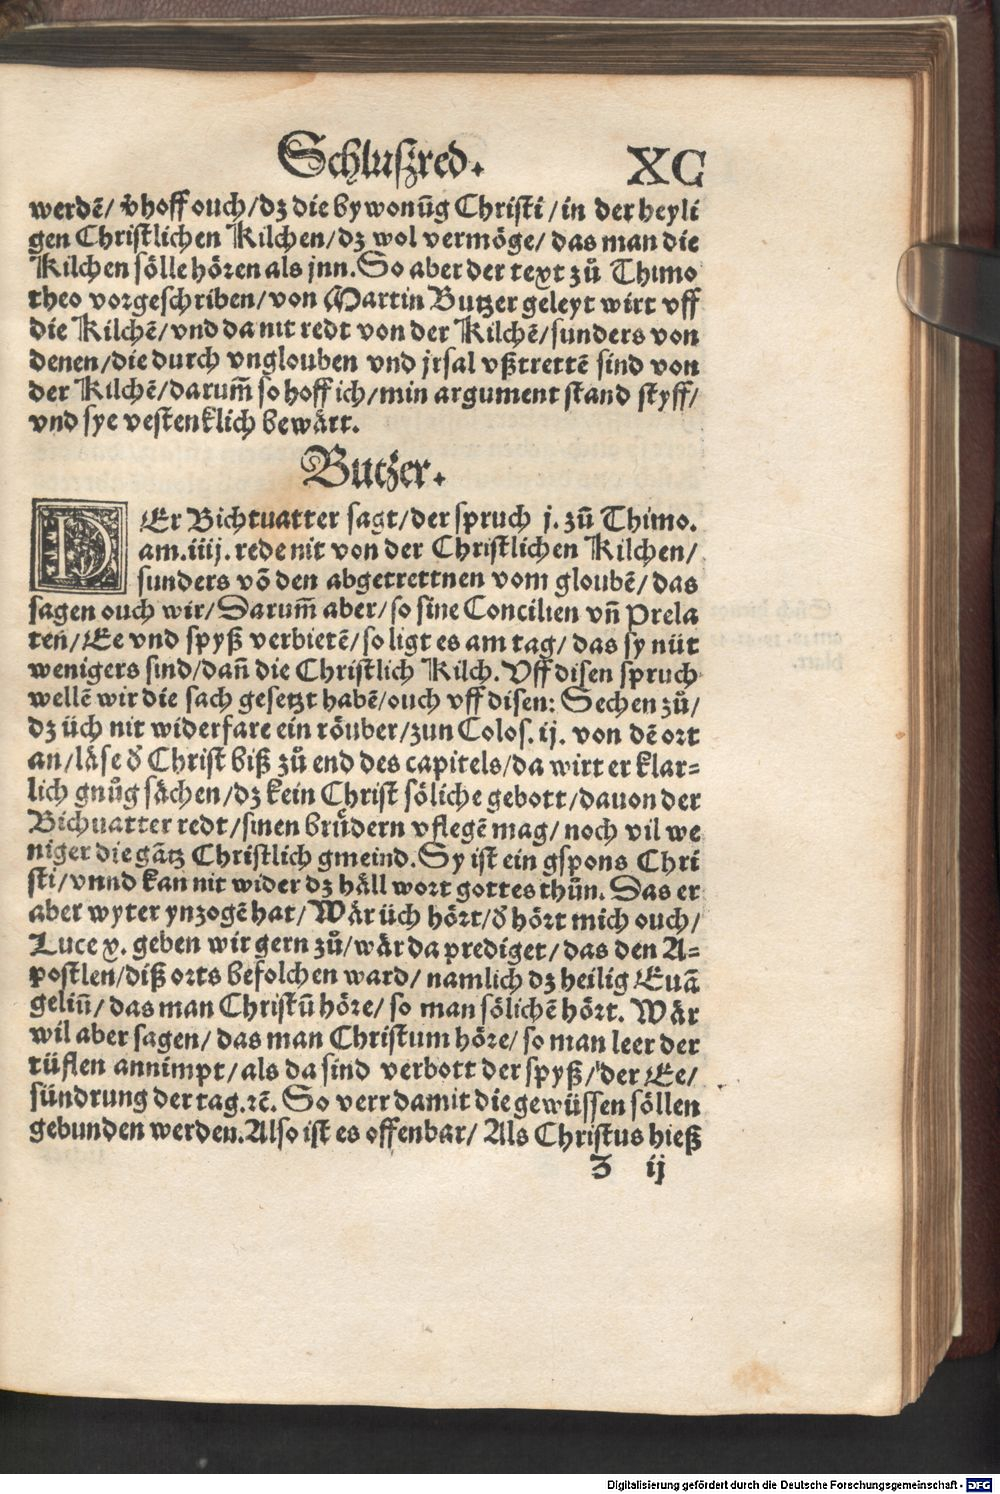 Schluſzred. XC
werdē/ v̄hoff ouch/dz die bywonūg Chriſti/in der heyli
gen Chriſtlichen Kilchen/dz wol vermöge/das man die
Kilchen ſölle hören als jnn. So aber der text zů Thimo
theo vorgeſchriben/von Martin Butzer geleyt wirt vff
die Kilchē/vnd da nit redt von der Kilchē/ſunders von
denen/die durch vnglouben vnd jrſal vßtrettē ſind von
der Kilchē/darum̄ ſo hoff ich/min argument ſtand ſtyff/
vnd ſye veſtenklich bewärt.
Butzer.
DEr Bichtuatter ſagt/der ſpruch j. zů Thimo.
am.iiij. rede nit von der Chriſtlichen Kilchen/
ſunders vō den abgetrettnen vom gloubē/das
ſagen ouch wir/Darum̄ aber/ſo ſine Concilien vn̄ Prela
ten/Ee vnd ſpyß verbietē/ſo ligt es am tag/das ſy nüt
wenigers ſind/dan̄ die Chriſtlich Kilch. Vff diſen ſpruch
wellē wir die ſach geſetzt habē/ouch vff diſen: Sechen zů/
dz üch nit widerfare ein röuber/zun Coloſ. ij. von dē ort
an/läſe d' Chriſt biß zů end des capitels/da wirt er klar⸗
lich gnůg ſächen/dz kein Chriſt ſöliche gebott/dauon der
Bichuatter redt/ſinen brüdern vflegē mag/noch vil we
niger die gātz Chriſtlich gmeind. Sy iſt ein gſpons Chri
ſti/vnnd kan nit wider dz häll wort gottes thůn. Das er
aber wyter ynzogē hat/Wär üch hört/d' hört mich ouch/
Luce x. geben wir gern zů/wär da prediget/das den A⸗
poſtlen/diß orts befolchen ward/namlich dz heilig Euā
geliū/das man Chriſtū höre/ſo man ſölichē hört. Wär
wil aber ſagen/das man Chriſtum höre/ſo man leer der
tüflen annimpt/als da ſind verbott der ſpyß/der Ee/
ſündrung der tag.ꝛē. So verr damit die gewüſſen ſöllen
gebunden werden. Alſo iſt es offenbar/Als Chriſtus hieß
Z ij
Digitalisierung gefördert durch die Deutsche Forschungsgemeinschaft - DFG